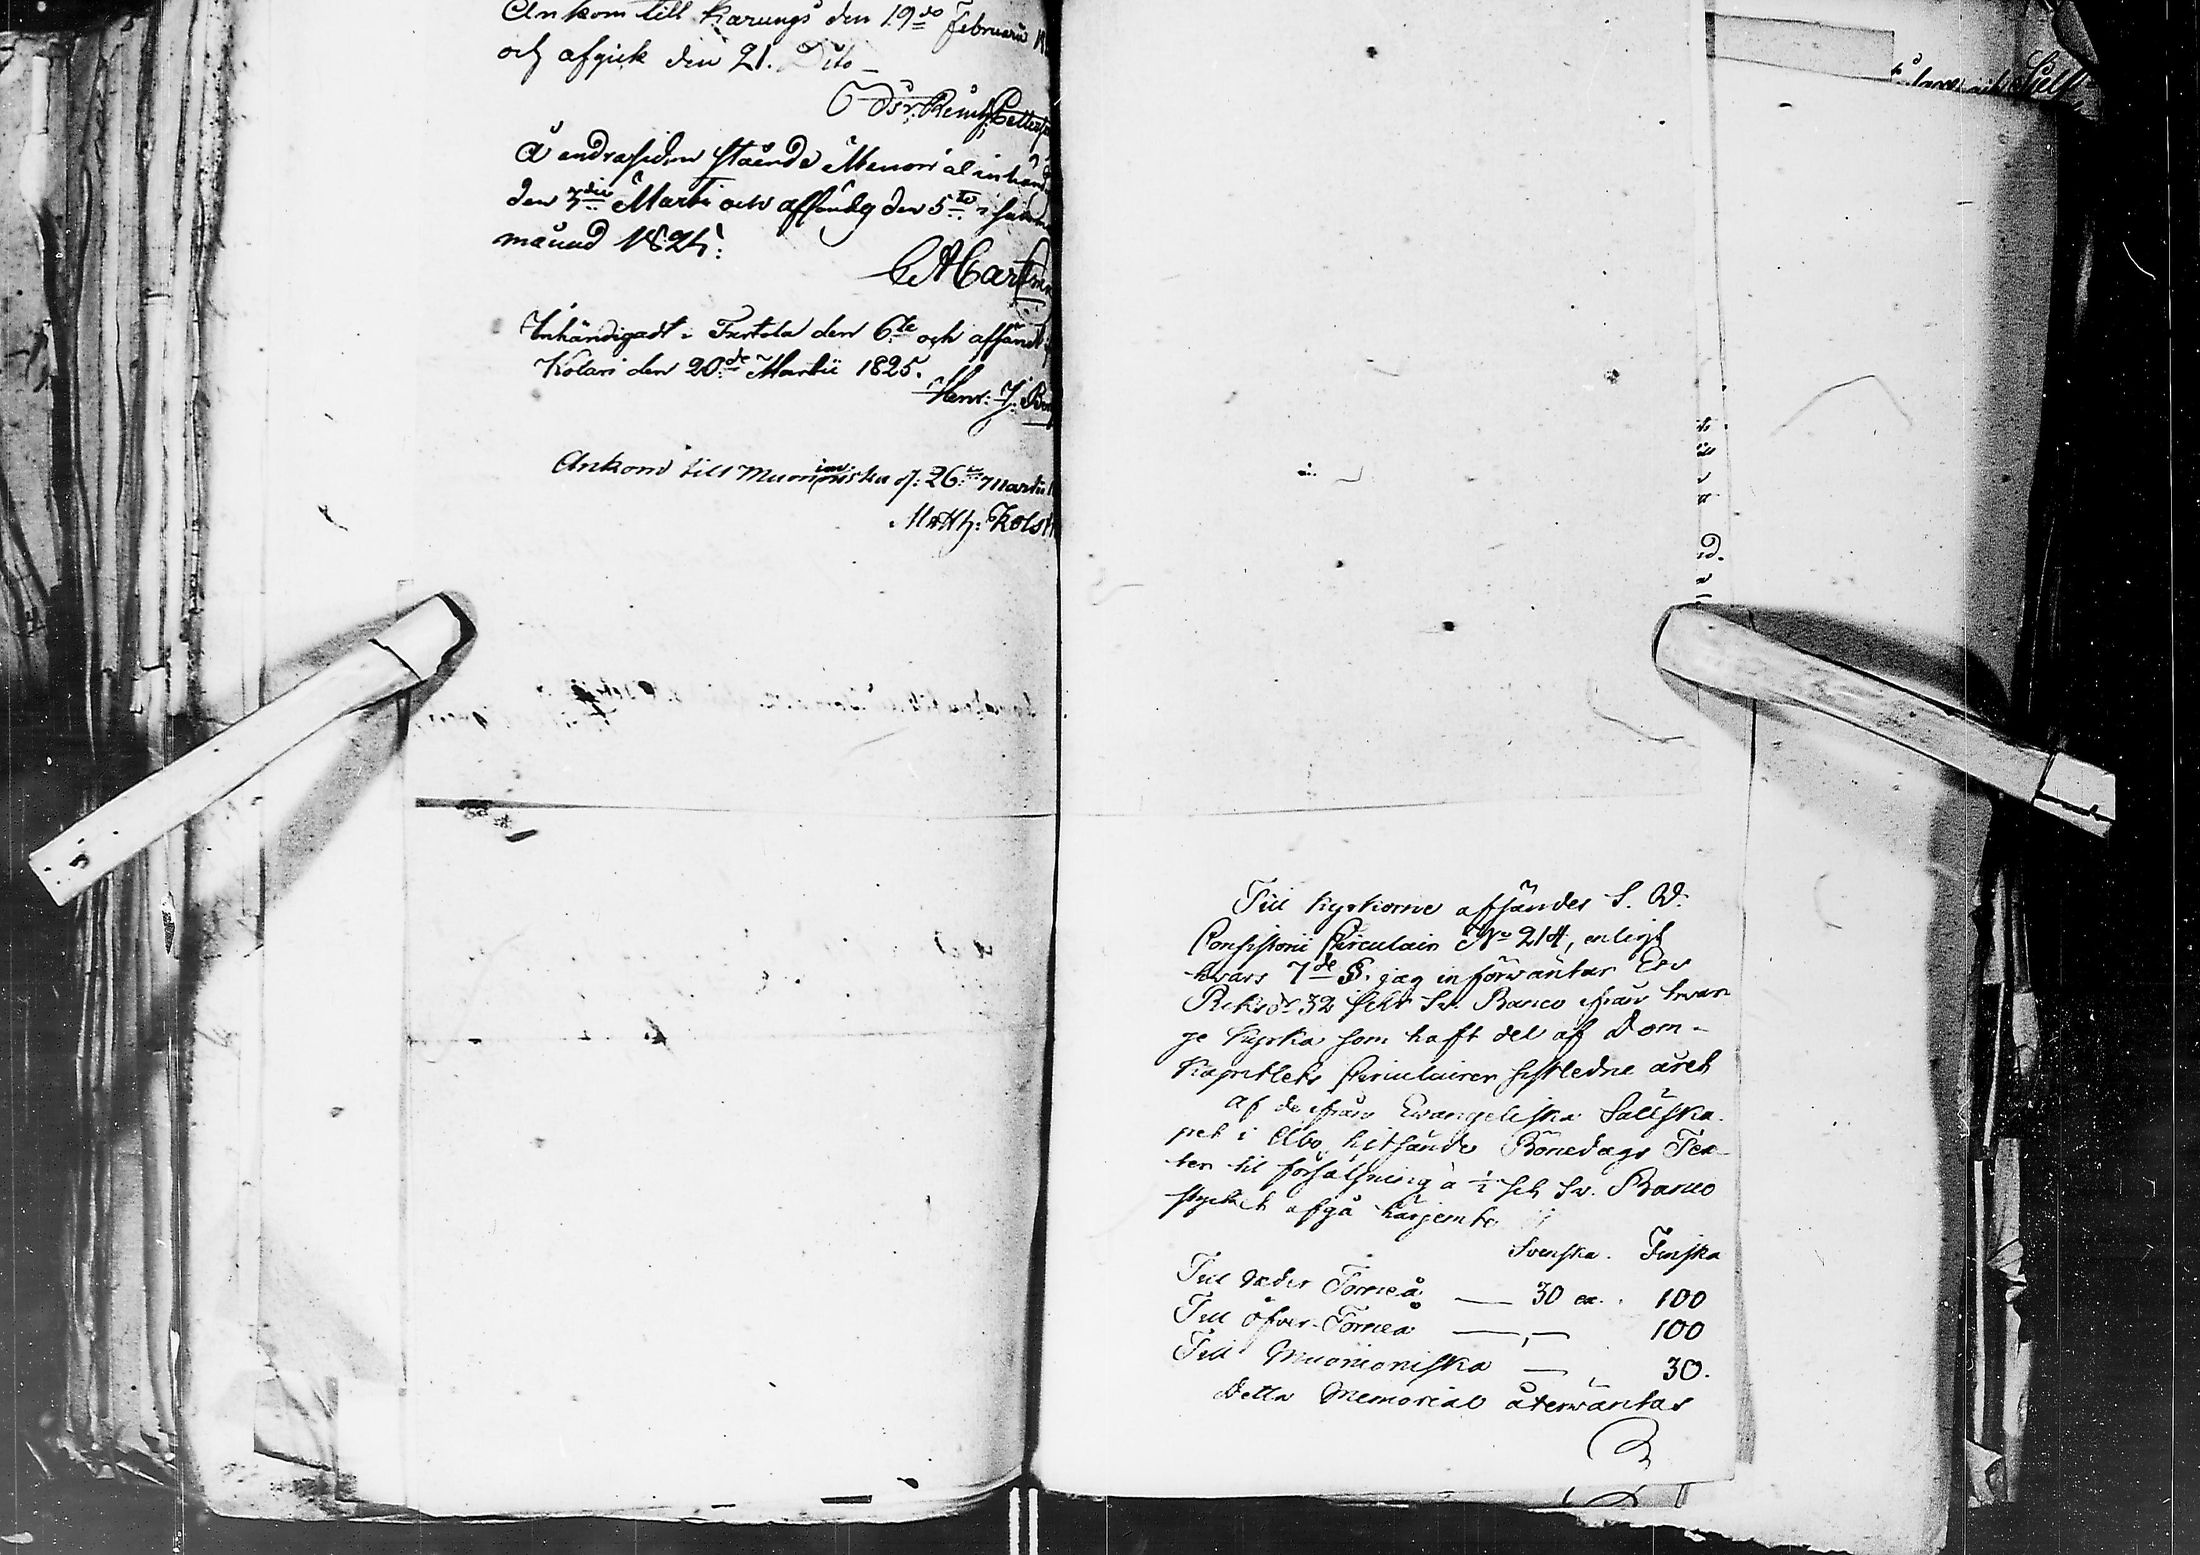 Ankom till Karungi den 19de Februarii
och afgick den 21. Dito
Å andra sidan stående Memorial
den 3die Martii och afsändg den 5te i samma
månad 1825.
Inhändigadt i Turtola den 6te och afsändt
Kolari den 20de Martii 1825.
Henr: J.
Ankom till Muonioniska d. 26te Martii
Matth: Kols
Till kyrkorne afsändes S. W.
Consistorii Circulair No 214, enligt
hvars 7de §. jag införwäntar Een
Riksdr 32 sch Sv. Banco ifrån hwar-
je kyrka som haft del af Dom-
kapitlets Circulairer sistledne året
Af de ifrån Evangeliska Sällska-
pet i Åbo hitsände Bönedags Tex-
ter til försäljning à ½ sch Sv. Banco
stycket afgå härjemte
Svenska. Finska
Till Neder Torneå — 30 ex. 100
Till Öfver-Torneå —,— 100
Till Muonioniska — 30.
Detta Memorial återwäntas